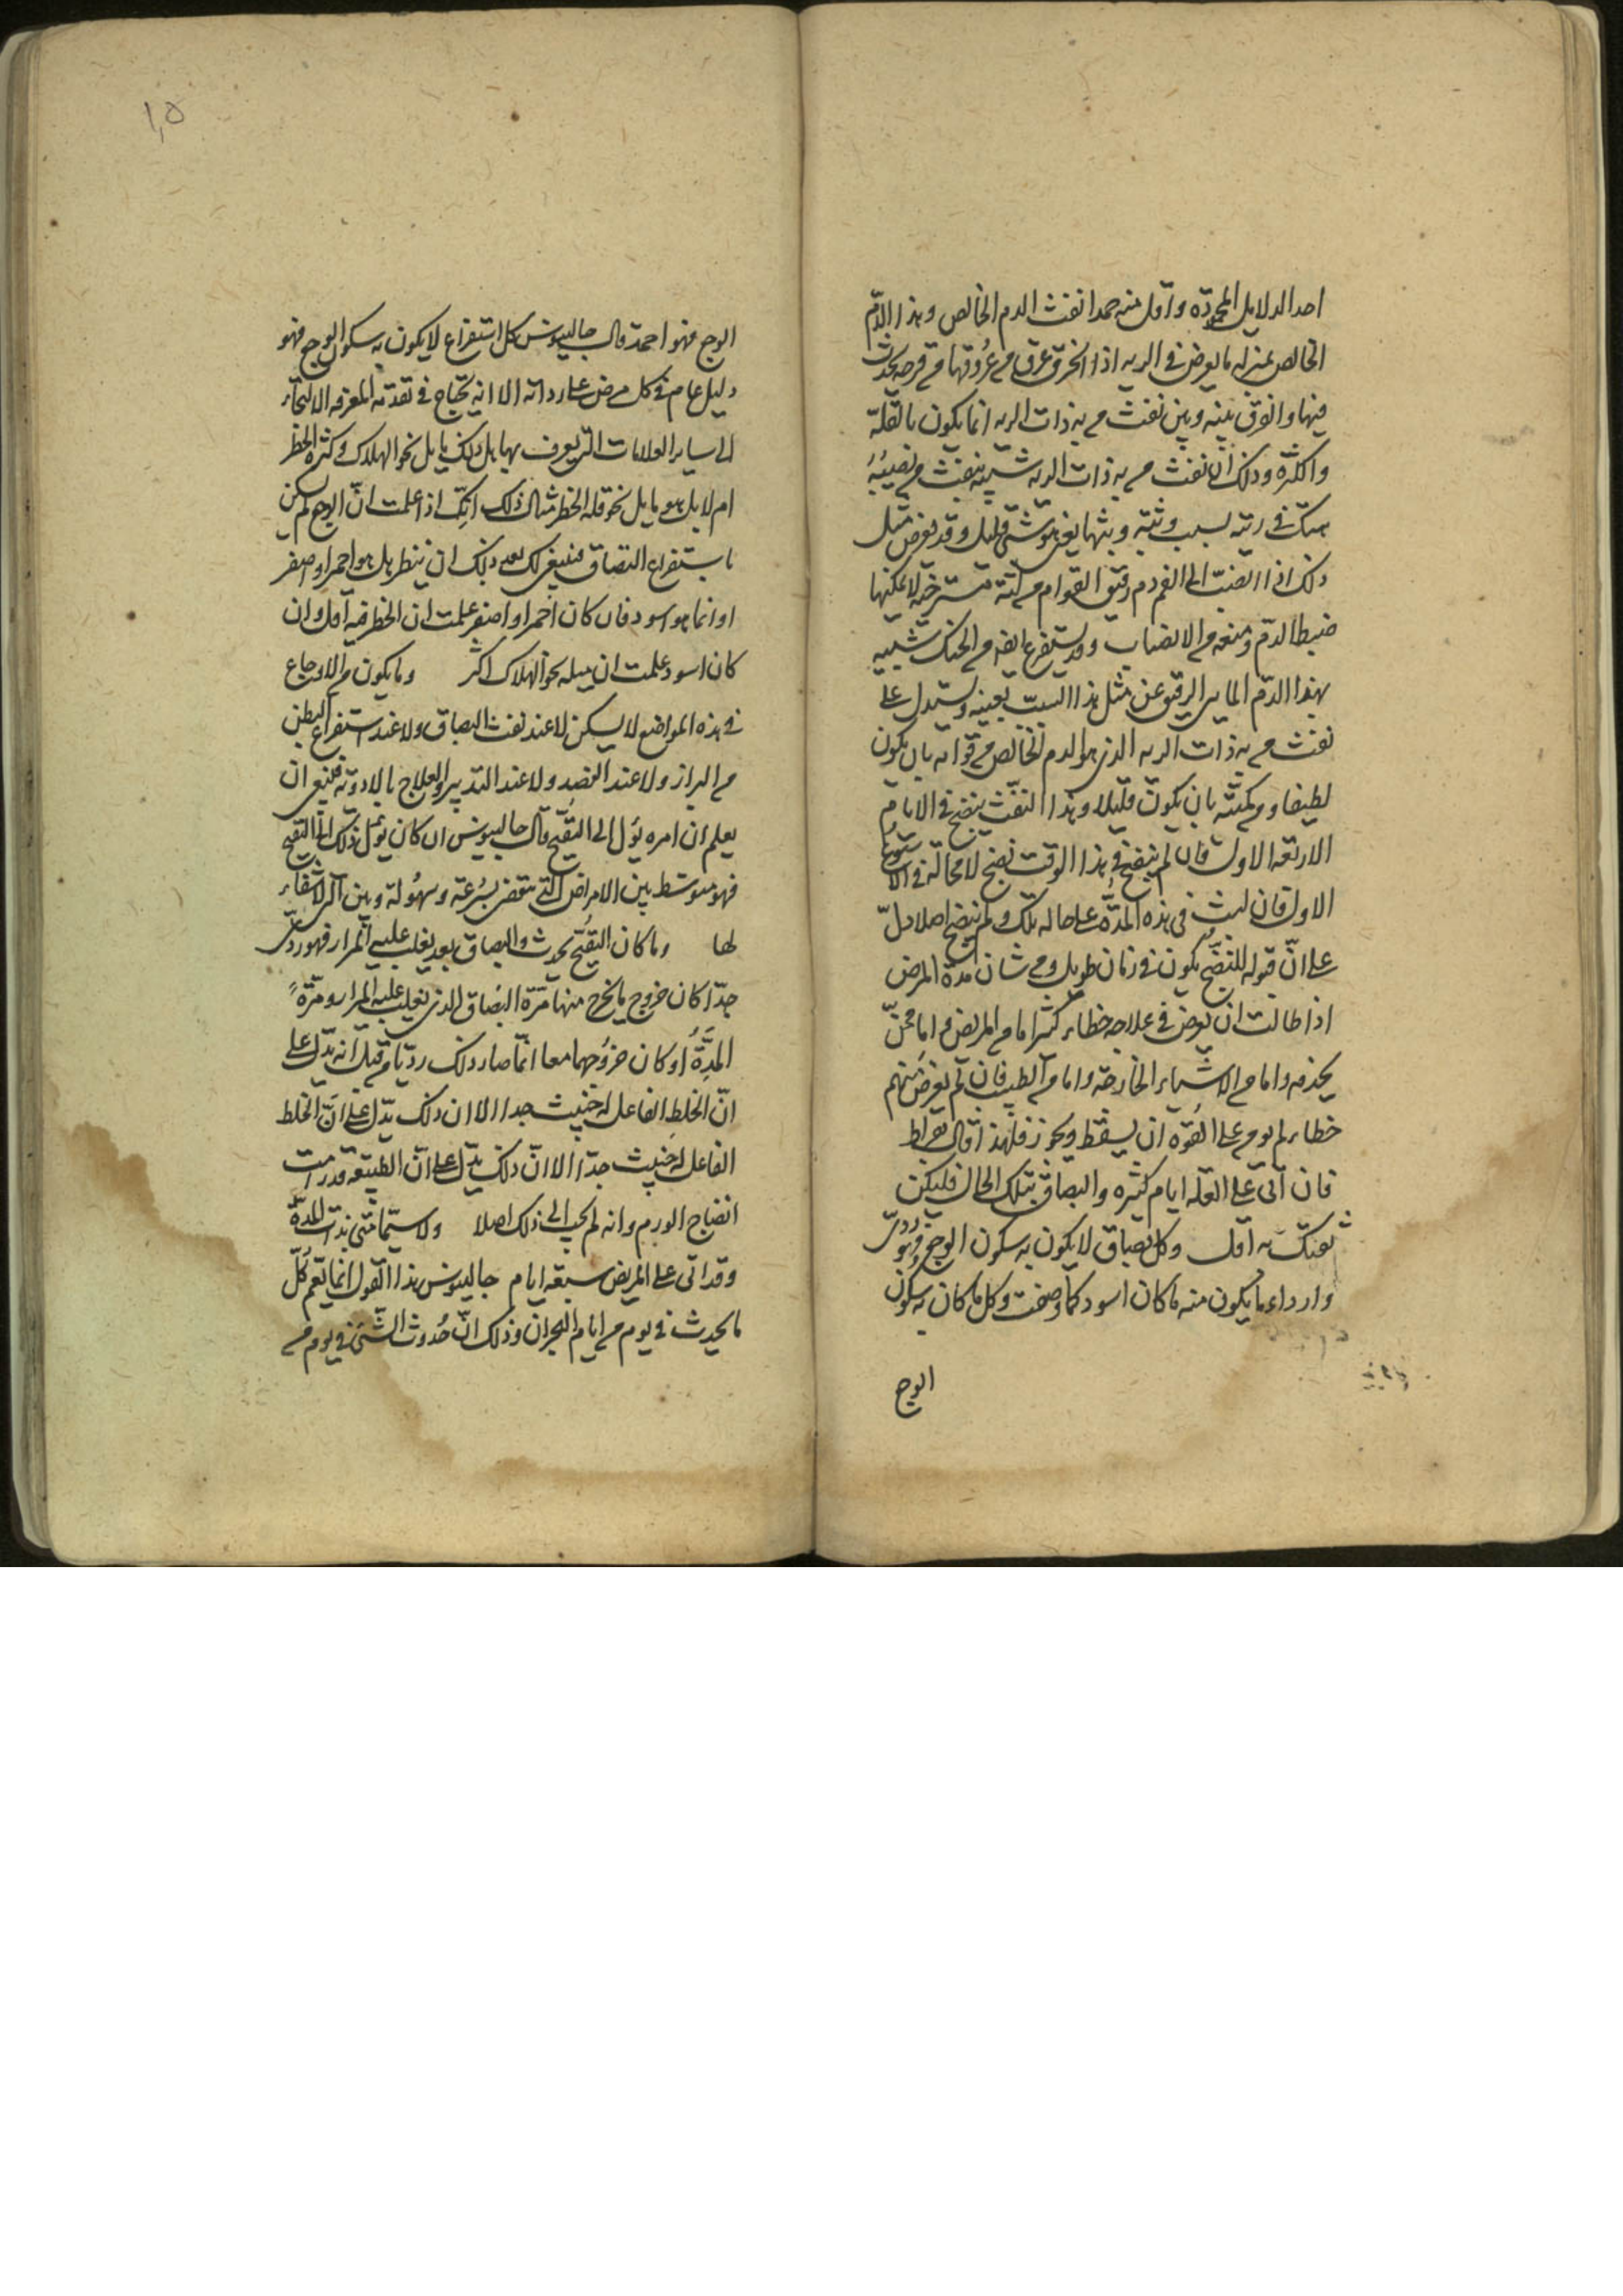 احد الدلايل المحمودة واقل منه حمدا نفث الدم الخالص وهذا الدّم
الخالص بمنزله ما يعرض فى الريه اذا انخرق عرق من عروقها من قرحه يحدث
فيها والفرق بينه وبين نفث من به ذات الريه انما يكون بالقلّة
والكثرة وذلك انّ نفث من به ذات الريه شبيه بنفث من يصيبُهُ
هتك فى ريته بسبب وثبة وثبها يعنى هو شئ قليل وقد يعرض مثل
ذلك اذا انصبّ الى الفم دم رقيق القوام من لثة مسترخية لا يمكنها
ضبط الدّم ومنعه من الانصباب وقد يستفرغ ايضه من الحنك شبيه
بهذا الدّم المايى الرقيق عن مثل هذا السبب بعينه ويستدل على
نفث من به ذات الريه الذى هو الدم الخالص من قوامه بان يكون
لطيفا ومن كميّته بان يكون قليلا وهذا النفث ينضج فى الايام
الاربعه الاول فان لم ينضج فى هذا الوقت نضج لا محالة فى الاسبوع
الاول فان لبث فى هذه المدّة على حاله تلك ولم ينضج اصلا دلّ
على انّ قبوله للنضج يكون فى زمان طويل ومن شان مدّة المرض
اذا طالت ان يعرض فى علاجه خطاء كثير اما من المريض واما ممّن
يخدمه واما من الاشياء الخارجة واما من الطبيب فان لم يعرض منهم
خطاء لم يومن على القوّه ان يسقط ويخور فلهذا قال بقراط
فان اتى على العلّه ايام كثيره والبصاق بتلك الحال فليكن
ثقتك به اقل وكل بصاق لا يكون به سكون الوجع فهو ردىّ
وارداء ما يكون منه ما كان اسود كما وصفت وكل ما كان به سكون
الوجع
١٫٥
الوجع فهو احمد قال جالينوس كل استفراغ لا يكون به سكون الوجع فهو
دليل عام فى كل مرض على رداته الا انه يحتاج فى تقدمة المعرفه الا التجاء
الى ساير العلامات التى يعرف بها هل ذلك مايل نحو الهلاك وكثرة الخطر
ام لا بل هو مايل نحو قلة الخطر مثال ذلك انّك اذا علمت انّ الوجع لم يسكن
باستفراغ البصاق فينبغى لك بعد ذلك ان ينظر هل هو احمر او اصفر
او انما هو اسود فان كان احمر او اصفر علمت ان الخطر فيه اقل وان
كان اسود علمت ان ميله نحو الهلاك اكثر وما يكون من الاوجاع
فى هذه المواضع لا يسكن لا عند نفث البصاق ولا عند استفراغ البطن
من البراز ولا عند الفصد ولا عند التدبير والعلاج بالادوية فينبغى ان
يعلم ان امره يؤل الى التقيّح قال جالينوس ان كان يؤل ذلك الى التقيح
فهو متوسط بين الامراض التى تنقضى بسُرعة وسهُولة وبين التى لا شفاء
لها وما كان التقيّح يحدث والبصاق بعد يغلب عليه المرار فهو ردىّ
جدّا كان خروج ما يخرج منها مرّة البصاق الذى يغلب عليه المرار ومرّةً
المِدَّةُ او كان خروجهما معا انّما صار ذلك رديّا من قبل انه يدّل على
انّ الخلط الفاعل له خبيث جدا الا ان ذلك يدّل على انّ الخلط
الفاعل له خبيث جدّا الا انّ ذلك يدّل على انّ الطبيعة قد رامت
انضاج الورم وانه لم يجب الى ذلك اصلا ولا سيّما متى بدت المدّة
وقد اتى على المريض سبعة ايام جالينوس هذا القول انما يعّم كُلّ
ما يحدث فى يوم من ايام البحران وذلك انّ حُدوث الشئ فى يوم من